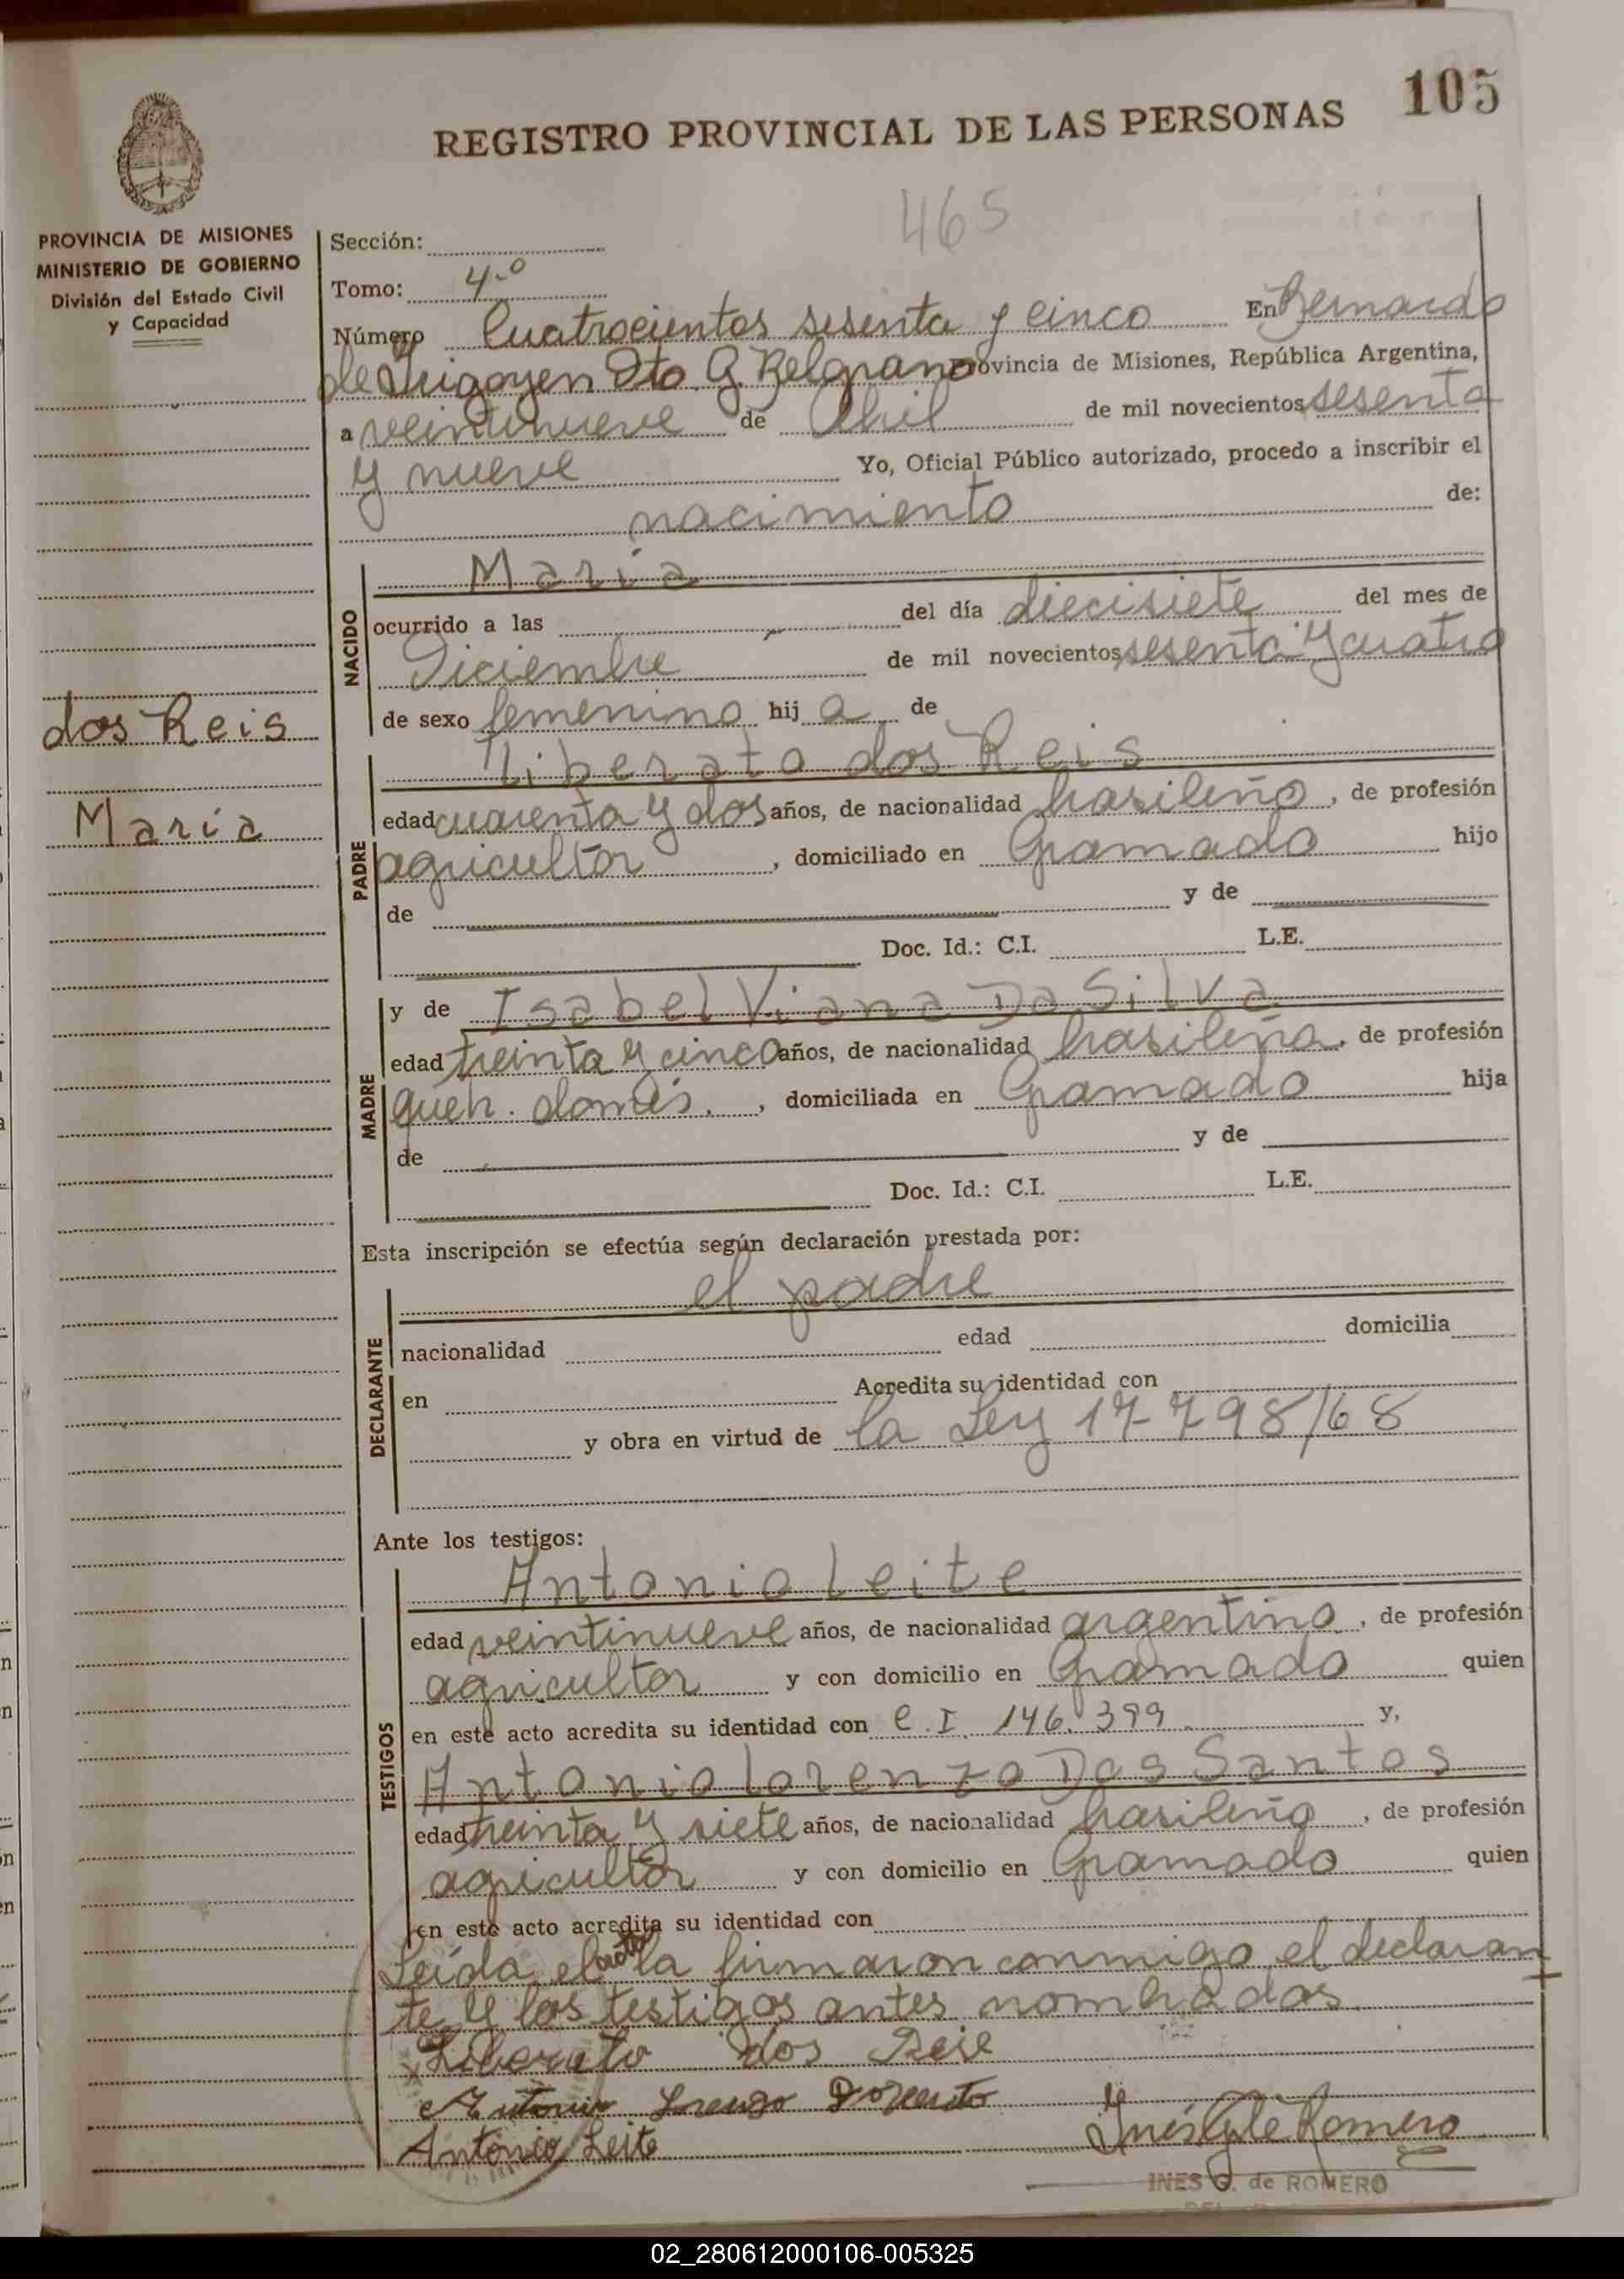 105
REGISTRO PROVINCIAL DE LAS PERSONAS
465
PROVINCIA DE MISIONES
MINISTERIO DE GOBIERNO
División del Estado Civil
y Capacidad
Sección:
Tomo: 4.º
Número Cuatrocientos sesenta y cinco En Bernardo
de Irigoyen Dto G. Belgrano Provincia de Misiones, República Argentina,
a veintinueve de Abril de mil novecientos sesenta
y nueve Yo, Oficial Público autorizado, procedo a inscribir el
nacimiento de:
NACIDO
Maria
ocurrido a las del día diecisiete del mes de
Diciembre de mil novecientos sesenta y cuatro
de sexo femenino hij a de
dos Reis
Maria
PADRE
Liberato dos Reis
edad cuarenta y dos años, de nacionalidad brasileño, de profesión
agricultor, domiciliado en Gramado hijo
de y de
Doc. Id.: C.I. L.E.
MADRE
y de Isabel Viana Da Silva
edad treinta y cinco años, de nacionalidad brasileña, de profesión
queh. domés., domiciliada en Gramado hija
de y de
Doc. Id.: C.I. L.E.
Esta inscripción se efectúa según declaración prestada por:
DECLARANTE
el padre
nacionalidad edad domicilia
en Acredita su identidad con
y obra en virtud de la Ley 17798/68
Ante los testigos:
TESTIGOS
Antonio Leite
edad veintinueve años, de nacionalidad argentino, de profesión
agricultor y con domicilio en Gramado quien
en este acto acredita su identidad con C.I. 146.399 y,
Antonio Lorenzo Dos Santos
edad treinta y siete años, de nacionalidad brasileño, de profesión
agricultor y con domicilio en Gramado quien
en este acto acredita su identidad con
Leída el acta la firmaron conmigo el declaran
te y los testigos antes nombrados
Liberato dos Reis
Antonio Lorenzo
Antonio Leite
Romero
INES G. de ROMERO
02_280612000106-005325